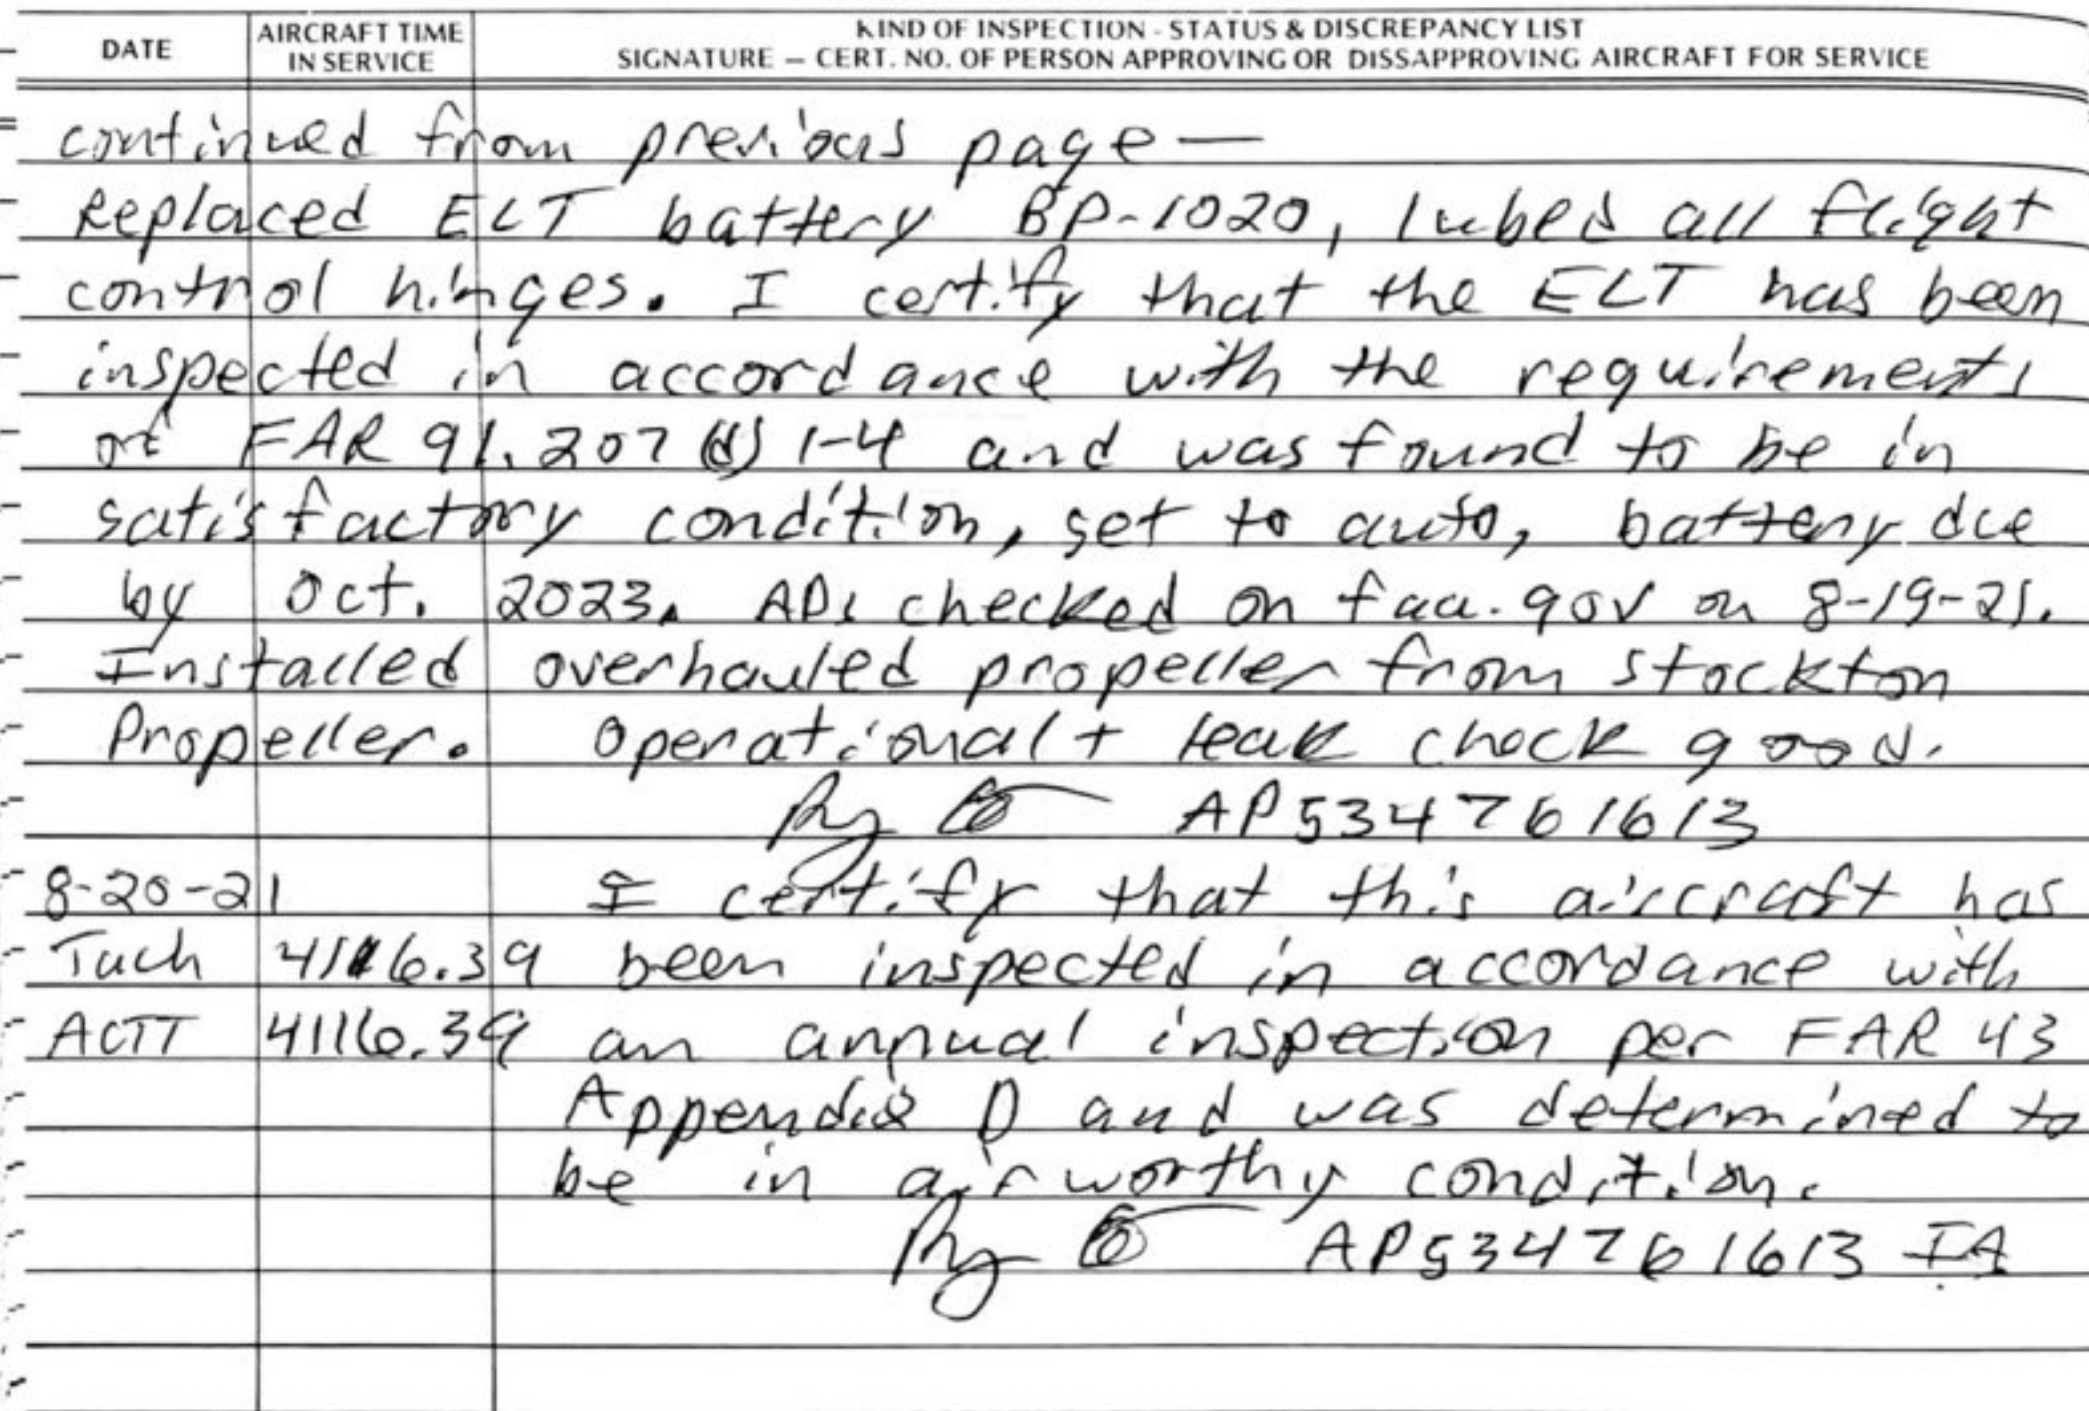 DATE
AIRCRAFT TIME
IN SERVICE
KIND OF INSPECTION - STATUS & DISCREPANCY LIST
SIGNATURE — CERT. NO. OF PERSON APPROVING OR DISSAPPROVING AIRCRAFT FOR SERVICE
continued from previous page —
Replaced ELT battery BP-1020, lubed all flight
control hinges. I certify that the ELT has been
inspected in accordance with the requirements
of FAR 91.207 (d) 1-4 and was found to be in
satisfactory condition, set to auto, battery due
by Oct. 2023. ADs checked on faa.gov on 8-19-21.
Installed overhauled propeller from Stockton
Propeller. Operational + leak check good.
AP534761613
8-20-21 I certify that this aircraft has
Tach 4116.39 been inspected in accordance with
ACTT 4116.39 an annual inspection per FAR 43
Appendix D and was determined to
be in airworthy condition.
AP534761613 IA